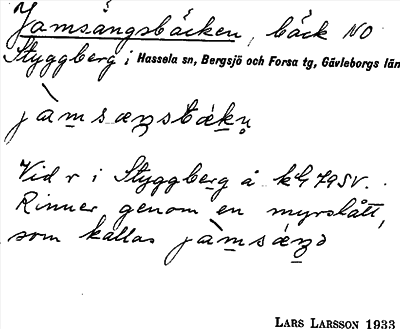 Jamsängsbäcken, bäck NO
Styggberg i Hassela sn, Bergsjö och Forsa tg, Gävleborgs län
Vid r i Styggberg å
Rinner genom en myrslått,
som kallas
LARS LARSSON 1933